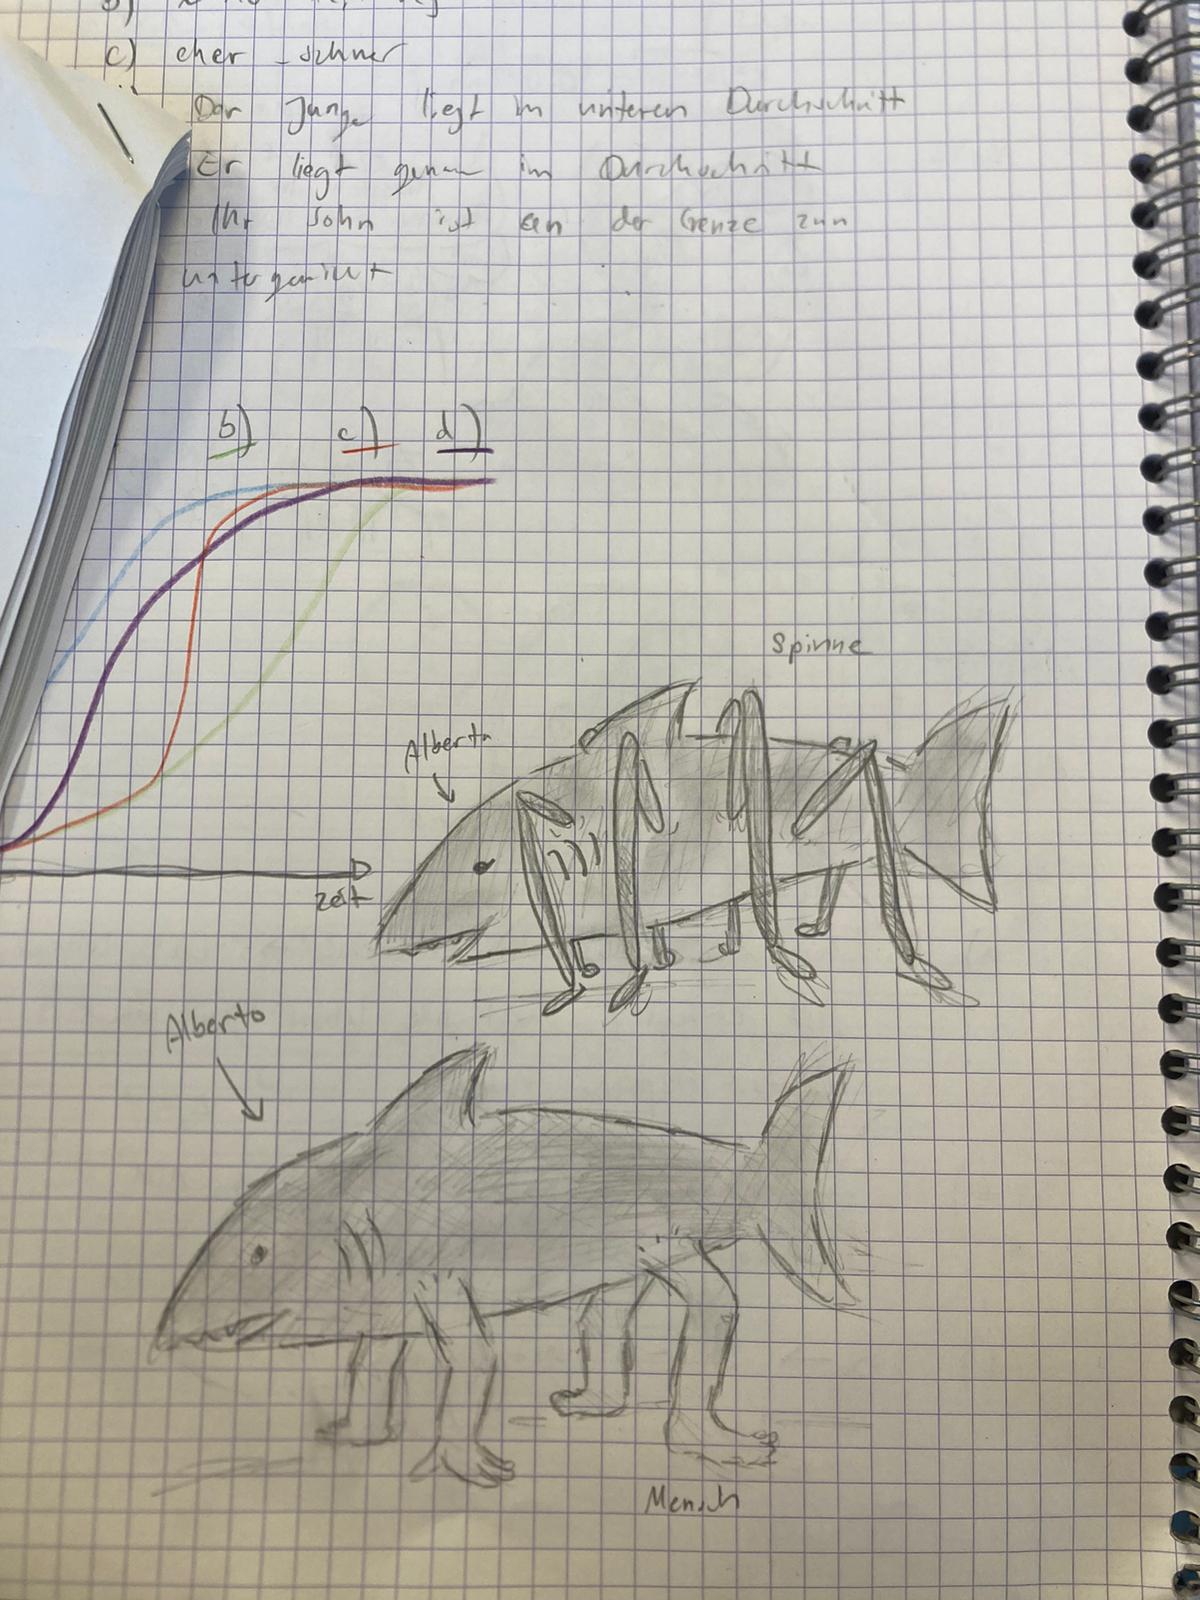 c) eher schwer
Der Junge liegt im unteren Durchschnitt
Er liegt genau im Durchschnitt
Ihr Sohn ist an der Grenze zum
untergewicht
b) c) d)
Spinne
Alberta
zeit
Alberto
Mensch